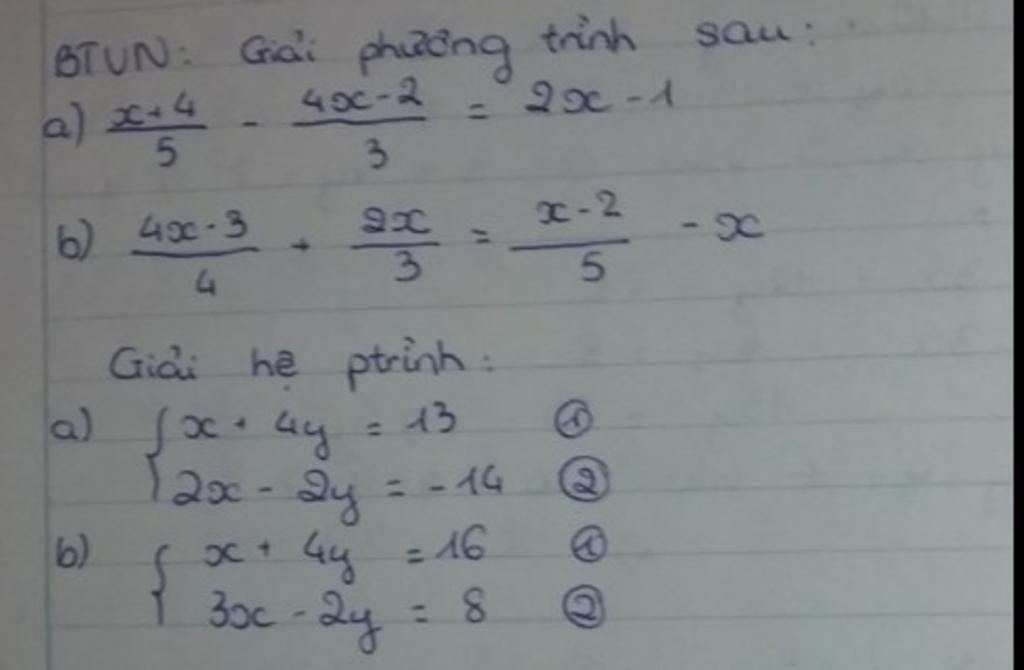 BTVN: Giải phương trình sau:
a) \frac{x+4}{5} - \frac{4x-2}{3} = 2x - 1
b) \frac{4x-3}{4} + \frac{2x}{3} = \frac{x-2}{5} - x
Giải hệ ptrình:
a) { x + 4y = 13 ①
2x - 2y = -14 ②
b) { x + 4y = 16 ①
3x - 2y = 8 ②